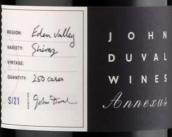 REGION: Eden Valley
VARIETY: Shiraz
VINTAGE:
QUANTITY: 250 cases
S/21 John Duval
JOHN
DUVAL
WINES
Annexus